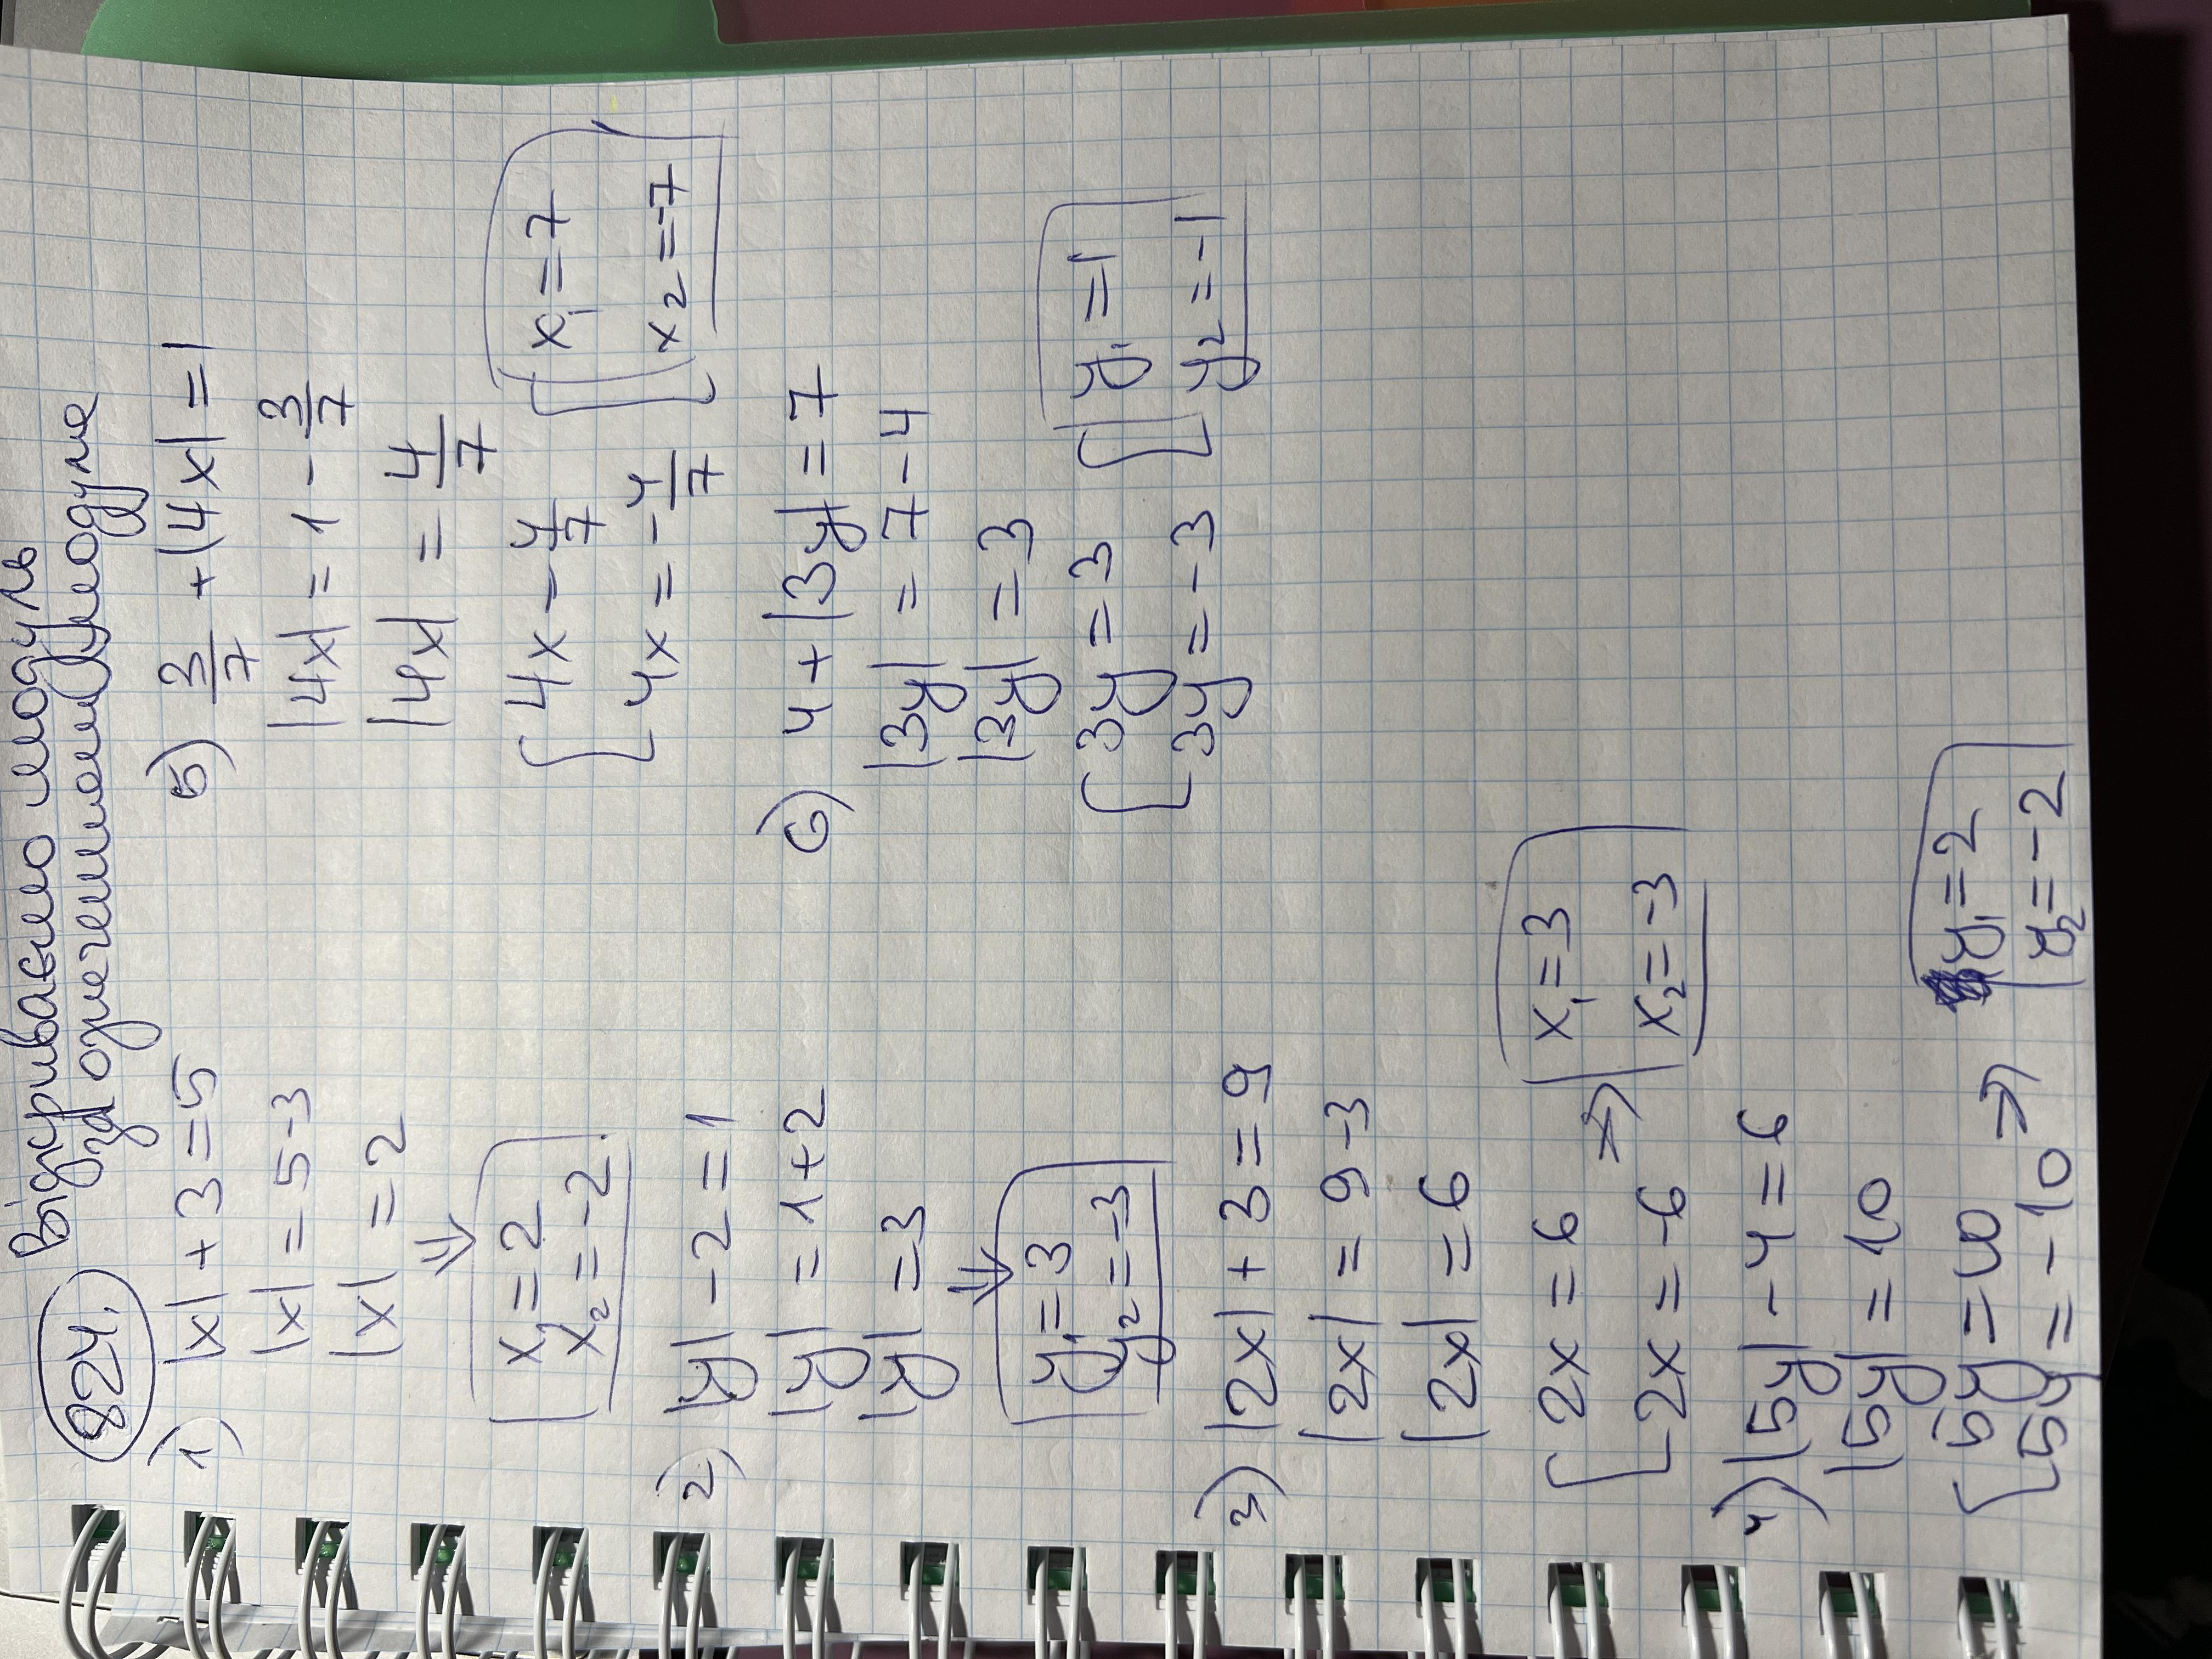 824. Відкриваємо модуль
за означенням модуля
1) |x| + 3 = 5
|x| = 5 - 3
|x| = 2
⇓
x₁ = 2
x₂ = -2
2) |y| - 2 = 1
|y| = 1 + 2
|y| = 3
⇓
y₁ = 3
y₂ = -3
3) |2x| + 3 = 9
|2x| = 9 - 3
|2x| = 6
[2x = 6
[2x = -6 ⇒
x₁ = 3
x₂ = -3
4) |5y| - 4 = 6
|5y| = 10
[5y = 10
[5y = -10 ⇒
y₁ = 2
y₂ = -2
5) 3/7 + |4x| = 1
|4x| = 1 - 3/7
|4x| = 4/7
[4x - 4/7 [x₁ = 7
[4x = -4/7 [x₂ = -7
6) 4 + |3y| = 7
|3y| = 7 - 4
|3y| = 3
[3y = 3 [y₁ = 1
[3y = -3 [y₂ = -1